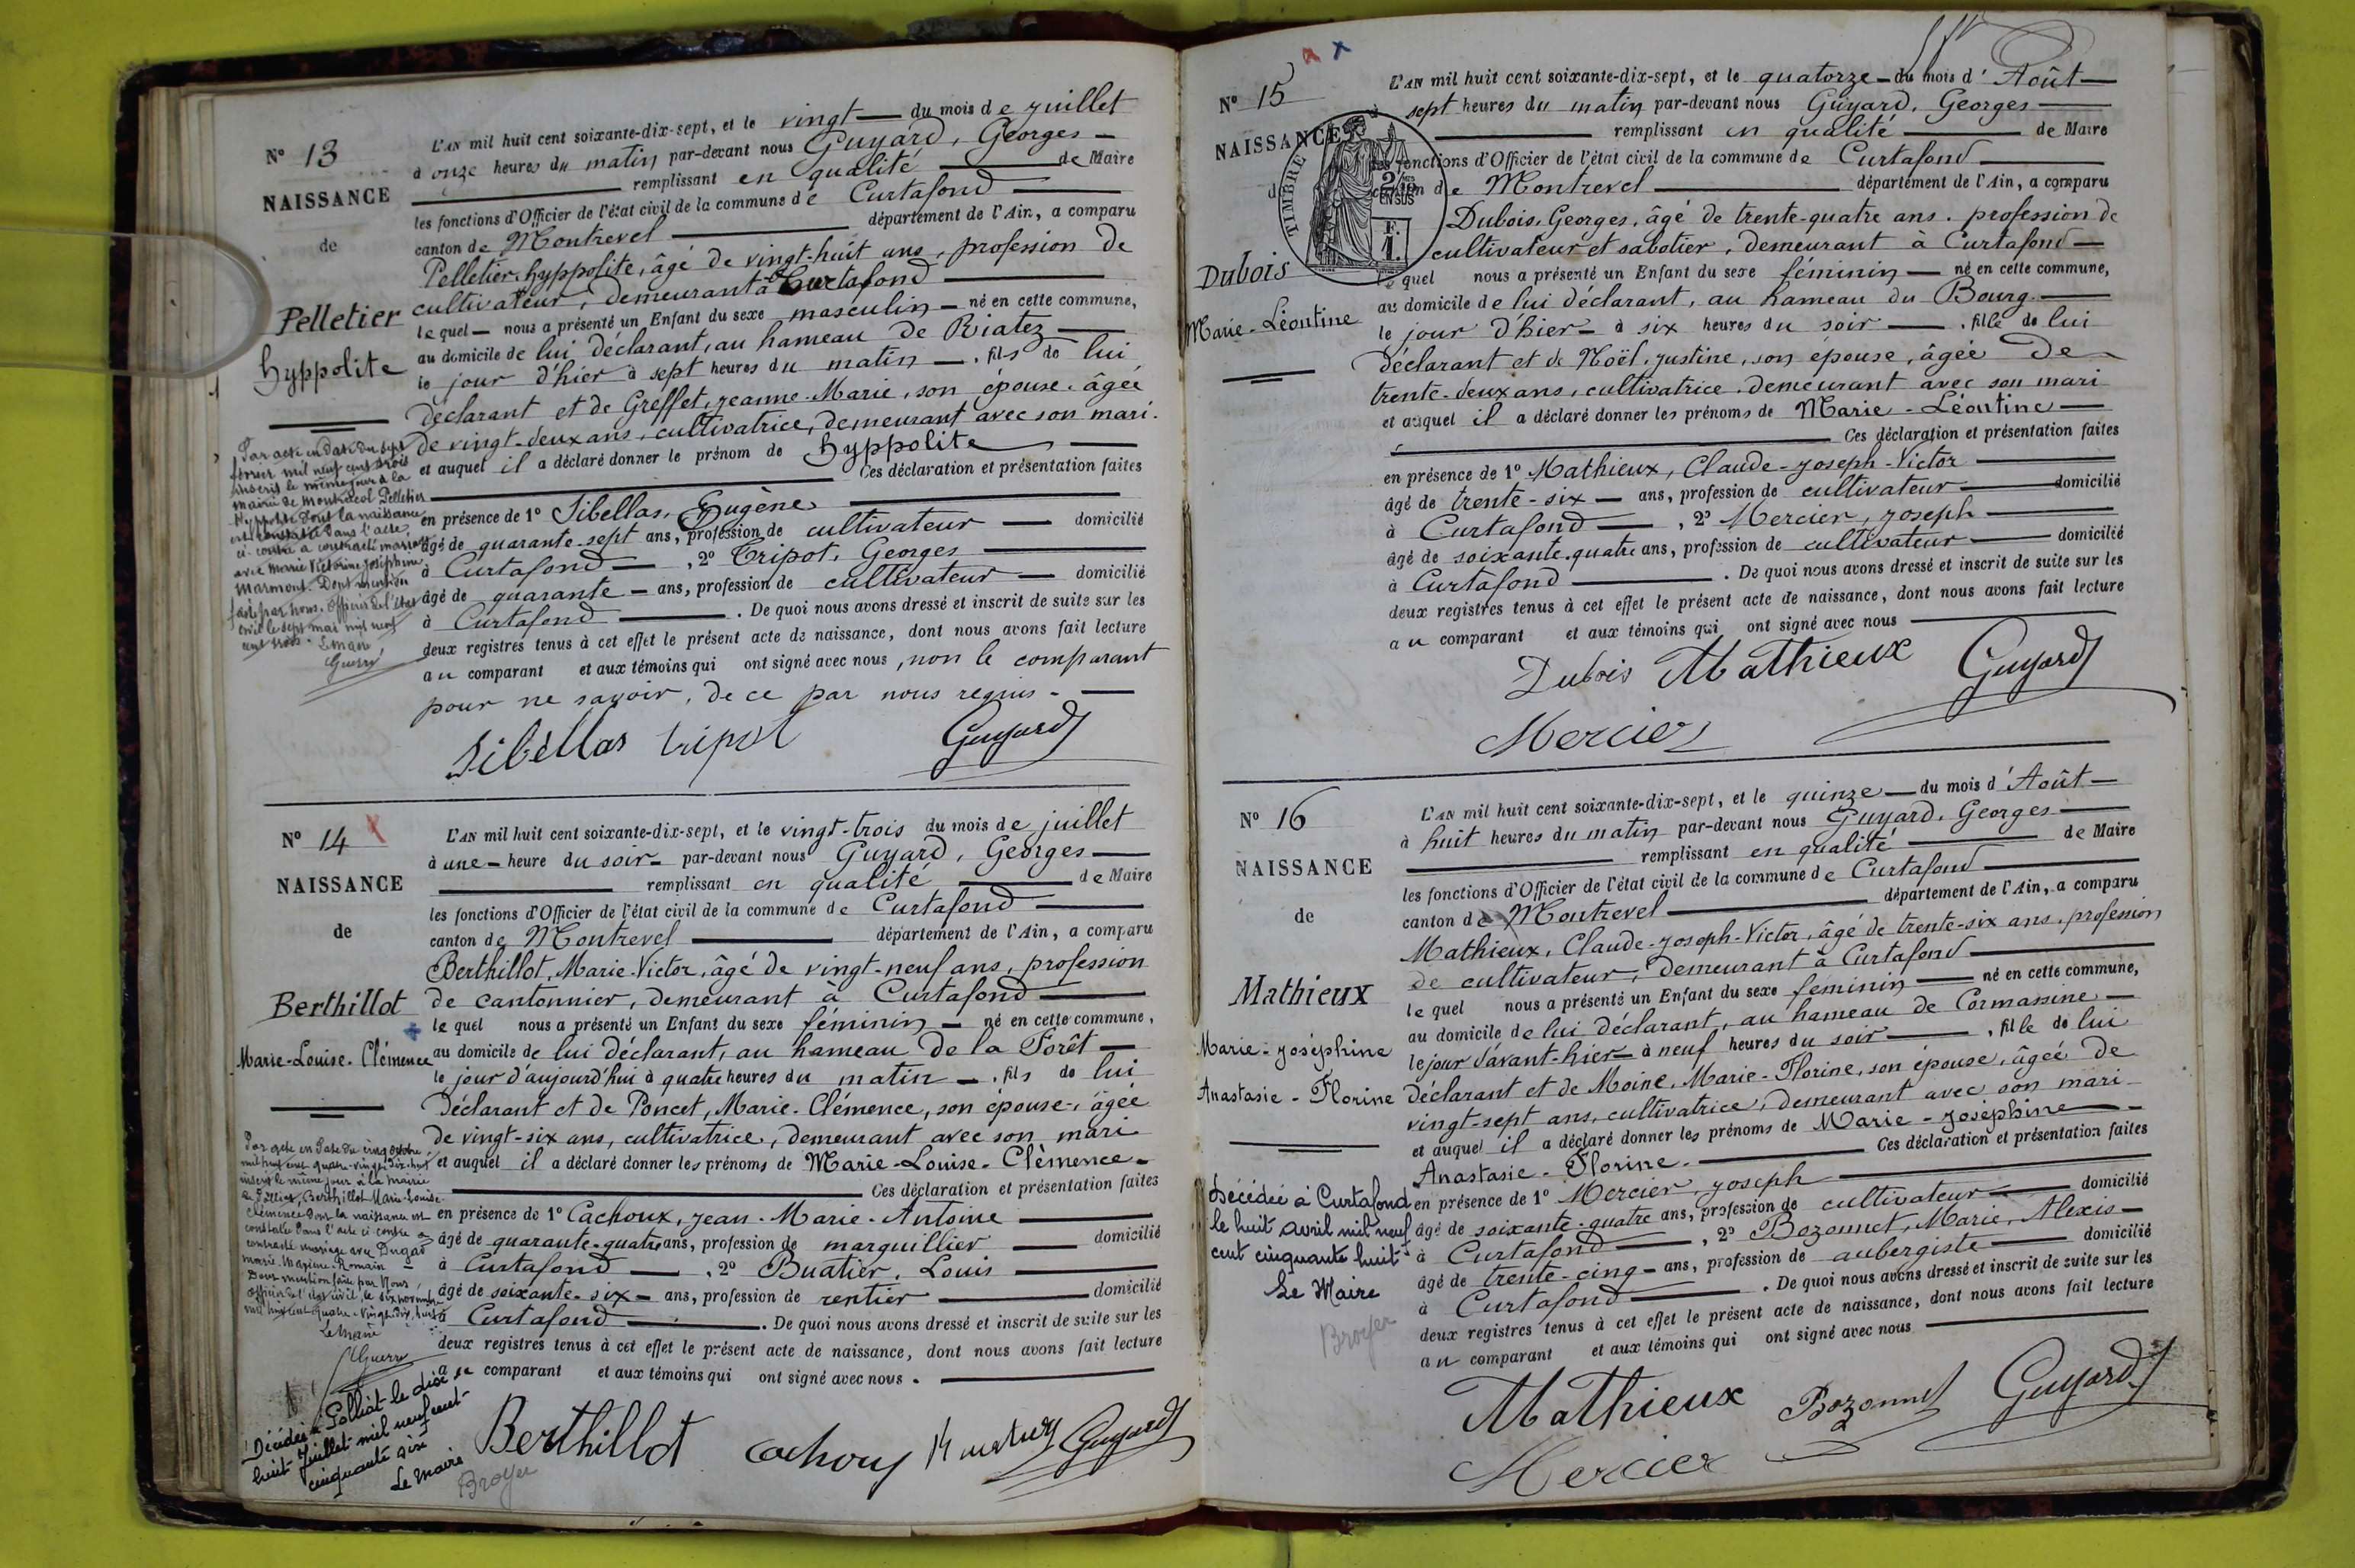 N° 13
NAISSANCE
de
Pelletier
hyppolite
L'AN mil huit cent soixante-dix-sept, et le vingt du mois de juillet
à onze heures du matin par-devant nous Guyard, Georges
remplissant en qualité de Maire
les fonctions d'Officier de l'état civil de la commune de Curtafond
canton de Montrevel département de l'Ain, a comparu
Pelletier, hyppolite, âgé de vingt-huit ans, profession de
cultivateur, demeurant à Curtafond
lequel nous a présenté un Enfant du sexe masculin né en cette commune,
au domicile de lui déclarant, au hameau de Riatez
le jour d'hier à sept heures du matin, fils de lui
déclarant et de Greffet, jeanne-Marie, son épouse, âgée
de vingt-deux ans, cultivatrice, demeurant avec son mari.
et auquel il a déclaré donner le prénom de hyppolite
Ces déclaration et présentation faites
en présence de 1° Sibellas, Eugène
âgé de quarante-sept ans, profession de cultivateur domicilié
à Curtafond, 2° Tripot, Georges
âgé de quarante ans, profession de cultivateur domicilié
à Curtafond. De quoi nous avons dressé et inscrit de suite sur les
deux registres tenus à cet effet le présent acte de naissance, dont nous avons fait lecture
au comparant et aux témoins qui ont signé avec nous, non le comparant
pour ne savoir, de ce par nous requis.
Sibellas tripot Guyard
Par acte en date du sept
février mil neuf cent trois
inscrit le même jour à la
mairie de Montracol Pelletier
Hyppolite dont la naissance
est constatée dans l'acte
ci-contre a contracté mariage
avec Marie Victorine Joséphine
Marmont. Dont mention
faite par nous, officier de l'état
civil le sept mai mil neuf
cent trois. Le maire
Guerry
N° 14
NAISSANCE
de
Berthillot
Marie-Louise-Clémence
L'AN mil huit cent soixante-dix-sept, et le vingt-trois du mois de juillet
à une heure du soir par-devant nous Guyard, Georges
remplissant en qualité de Maire
les fonctions d'Officier de l'état civil de la commune de Curtafond
canton de Montrevel département de l'Ain, a comparu
Berthillot, Marie-Victor, âgé de vingt-neuf ans, profession
de cantonnier, demeurant à Curtafond
lequel nous a présenté un Enfant du sexe féminin né en cette commune,
au domicile de lui déclarant, au hameau de la Forêt
le jour d'aujourd'hui à quatre heures du matin, fils de lui
déclarant et de Poncet, Marie-Clémence, son épouse, âgée
de vingt-six ans, cultivatrice, demeurant avec son mari
et auquel il a déclaré donner les prénoms de Marie-Louise-Clèmence
Ces déclaration et présentation faites
en présence de 1° Cachoux, jean-Marie-Antoine
âgé de quarante-quatre ans, profession de marguillier domicilié
à Curtafond, 2° Buatier, Louis
âgé de soixante-six ans, profession de rentier domicilié
à Curtafond. De quoi nous avons dressé et inscrit de suite sur les
deux registres tenus à cet effet le présent acte de naissance, dont nous avons fait lecture
au comparant et aux témoins qui ont signé avec nous.
Berthillot Cachoux Buatier Guyard
Par acte en date du cinq octobre
mil huit cent quatre-vingt-dix-huit
inscrit le même jour à la mairie
de Polliat, Berthillot Marie-Louise
Clémence dont la naissance est
constatée dans l'acte ci-contre a
contracté mariage avec Dugas
Marie-Maxime-Romain
Dont mention faite par Nous,
officier de l'état civil, le six novembre
mil huit cent quatre-vingt-dix-huit
Le Maire
Guerry
Décédée à Polliat le dix
huit Juillet mil neuf cent
cinquante six
Le Maire
Broyer
N° 15
NAISSANCE
TIMBRE
2/10es
EN SUS
F.
1.
Dubois
Marie-Léontine
L'AN mil huit cent soixante-dix-sept, et le quatorze du mois d'Août
à sept heures du matin par-devant nous Guyard, Georges
remplissant en qualité de Maire
les fonctions d'Officier de l'état civil de la commune de Curtafond
canton de Montrevel département de l'Ain, a comparu
Dubois, Georges, âgé de trente-quatre ans, profession de
cultivateur et sabotier, demeurant à Curtafond
lequel nous a présenté un Enfant du sexe féminin né en cette commune,
au domicile de lui déclarant, au hameau du Bourg
le jour d'hier à six heures du soir, fille de lui
déclarant et de Noël, justine, son épouse, âgée de
trente-deux ans, cultivatrice, demeurant avec son mari
et auquel il a déclaré donner les prénoms de Marie-Léontine
Ces déclaration et présentation faites
en présence de 1° Mathieux, Claude-joseph-Victor
âgé de trente-six ans, profession de cultivateur domicilié
à Curtafond, 2° Mercier, joseph
âgé de soixante-quatre ans, profession de cultivateur domicilié
à Curtafond. De quoi nous avons dressé et inscrit de suite sur les
deux registres tenus à cet effet le présent acte de naissance, dont nous avons fait lecture
au comparant et aux témoins qui ont signé avec nous
Dubois Mathieux Guyard
Mercier
N° 16
NAISSANCE
de
Mathieux
Marie-joséphine
Anastasie-Florine
L'AN mil huit cent soixante-dix-sept, et le quinze du mois d'Août
à huit heures du matin par-devant nous Guyard, Georges
remplissant en qualité de Maire
les fonctions d'Officier de l'état civil de la commune de Curtafond
canton de Montrevel département de l'Ain, a comparu
Mathieux, Claude-joseph-Victor, âgé de trente-six ans, profession
de cultivateur, demeurant à Curtafond
lequel nous a présenté un Enfant du sexe féminin né en cette commune,
au domicile de lui déclarant, au hameau de Cormassine
le jour d'avant-hier à neuf heures du soir, fille de lui
déclarant et de Moine, Marie-Florine, son épouse, âgée de
vingt-sept ans, cultivatrice, demeurant avec son mari
et auquel il a déclaré donner les prénoms de Marie-joséphine
Anastasie-Florine. Ces déclaration et présentation faites
en présence de 1° Mercier, joseph
âgé de soixante-quatre ans, profession de cultivateur domicilié
à Curtafond, 2° Bozonnet, Marie, Alexis
âgé de trente-cinq ans, profession de aubergiste domicilié
à Curtafond. De quoi nous avons dressé et inscrit de suite sur les
deux registres tenus à cet effet le présent acte de naissance, dont nous avons fait lecture
au comparant et aux témoins qui ont signé avec nous
Mathieux Bozonnet Guyard
Mercier
Décédée à Curtafond
le huit avril mil neuf
cent cinquante huit
Le Maire
Broyer